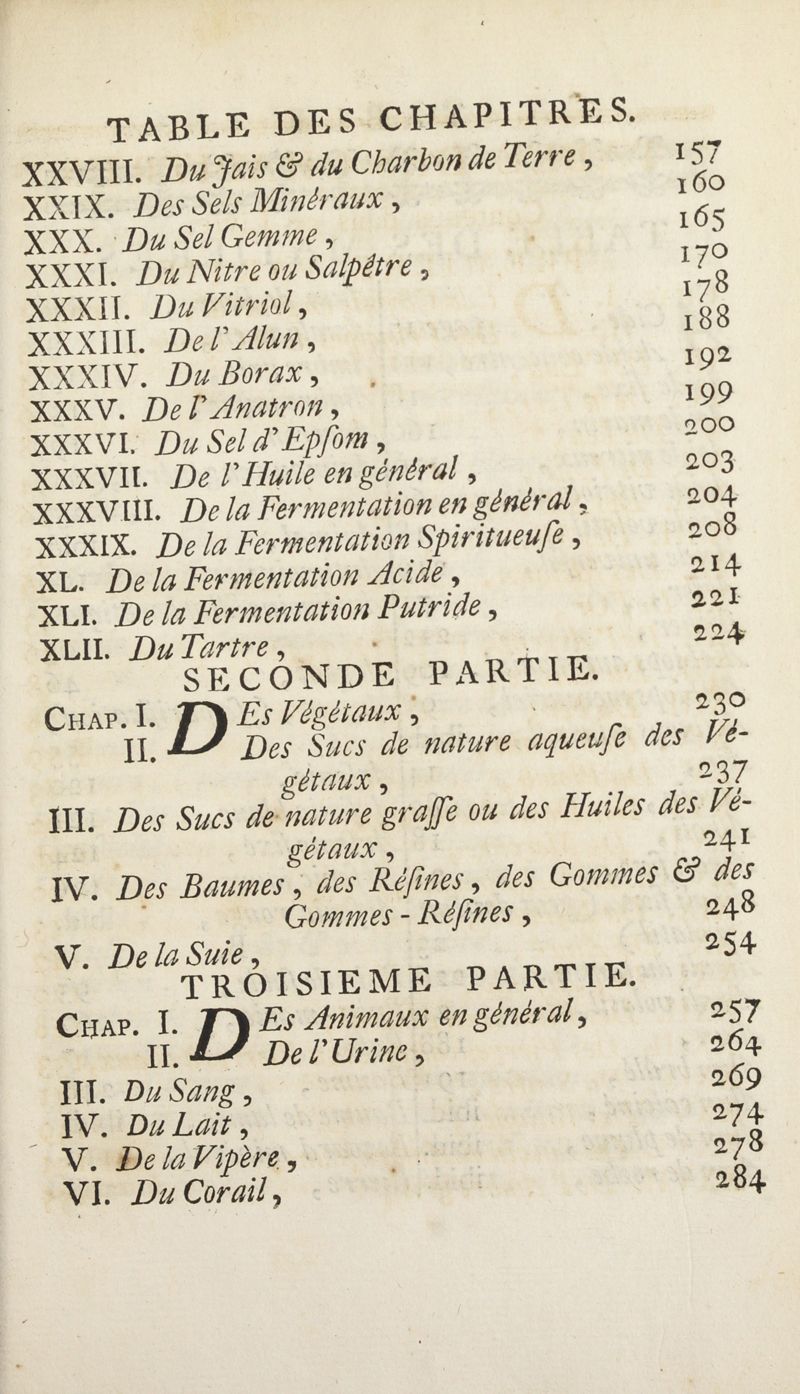 TABLE DES CHAPITRES.
XXVIII. Du Jais & du Charbon de Terre, 157
XXIX. Des Sels Minéraux, 160
XXX. Du Sel Gemme, 165
XXXI. Du Nitre ou Salpêtre, 170
XXXII. Du Vitriol, 178
XXXIII. De l'Alun, 188
XXXIV. Du Borax, 192
XXXV. De l'Anatron, 199
XXXVI. Du Sel d'Epſom, 200
XXXVII. De l'Huile en général, 203
XXXVIII. De la Fermentation en général, 204
XXXIX. De la Fermentation Spiritueuſe, 208
XL. De la Fermentation Acide, 214
XLI. De la Fermentation Putride, 221
XLII. Du Tartre, 224
SECONDE PARTIE.
CHAP. I. DEs Végétaux, 230
II. Des Sucs de nature aqueuſe des Vé-
gétaux, 237
III. Des Sucs de nature graſſe ou des Huiles des Vé-
gétaux, 241
IV. Des Baumes, des Réſines, des Gommes & des
Gommes-Réſines, 248
V. De la Suie, 254
TROISIEME PARTIE.
CHAP. I. DEs Animaux en général, 257
II. De l'Urine, 264
III. Du Sang, 269
IV. Du Lait, 274
V. De la Vipère, 278
VI. Du Corail, 284